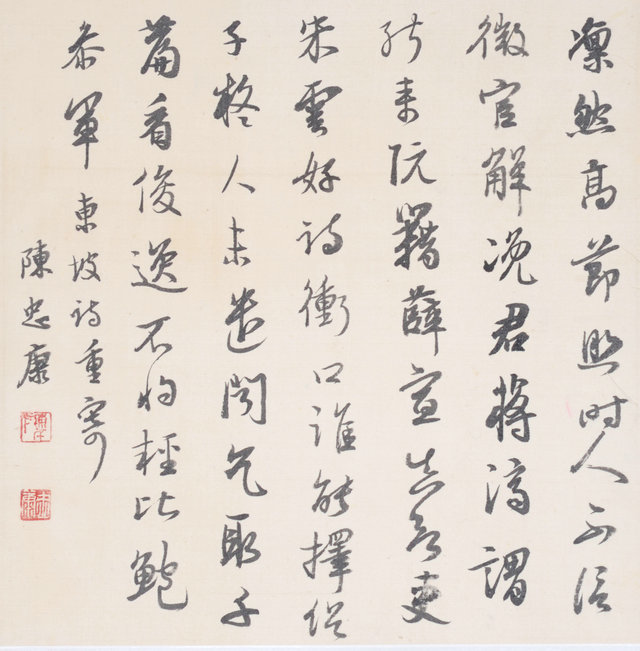 凜然高節照时人不信
微官解浼君蔣濟謂
能来阮籍薛宣真欲吏
朱雲好詩衝口誰能擇俗
子疑人未遣聞乞取千
篇看俊逸不將輕比鮑
叅軍 東坡詩重寄
陳忠康